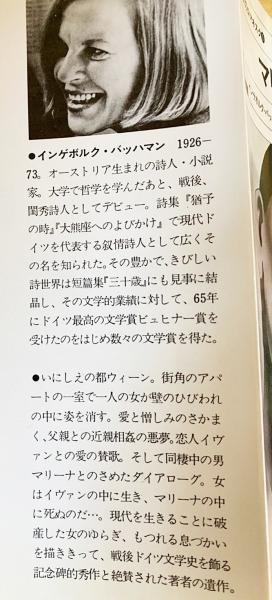 ●インゲボルク・バッハマン 1926―
73。オーストリア生まれの詩人・小説
家。大学で哲学を学んだあと、戦後、
閨秀詩人としてデビュー。詩集『猶予
の時』『大熊座へのよびかけ』で現代ド
イツを代表する叙情詩人として広くそ
の名を知られた。その豊かで、きびしい
詩世界は短篇集『三十歳』にも見事に結
晶し、その文学的業績に対して、65年
にドイツ最高の文学賞ビュヒナー賞を
受けたのをはじめ数々の文学賞を得た。
●いにしえの都ウィーン。街角のアパ
ートの一室で一人の女が壁のひびわれ
の中に姿を消す。愛と憎しみのさかま
く、父親との近親相姦の悪夢。恋人イヴ
ァンとの愛の賛歌。そして同棲中の男
マリーナとのさめたダイアローグ。女
はイヴァンの中に生き、マリーナの中
に死ぬのだ…。現代を生きることに破
産した女のゆらぎ、もつれる息づかい
を描ききって、戦後ドイツ文学史を飾る
記念碑的秀作と絶賛された著者の遺作。